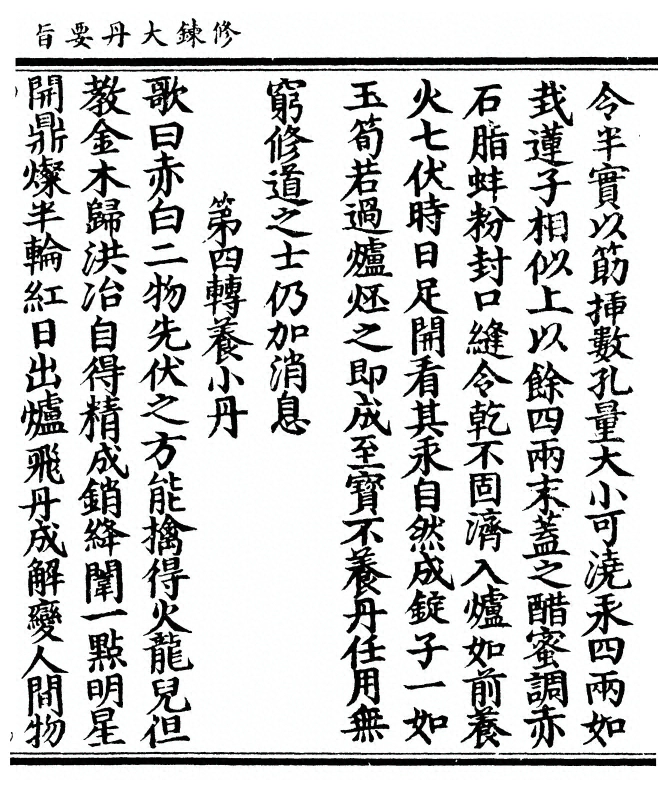 修鍊大丹要旨
令半實以筯揷數孔量大小可澆汞四兩如
㦲蓮子相似上以餘四兩末蓋之醋蜜調赤
石脂蚌粉封口縫令乾不固濟入爐如前養
火七伏時日足開看其汞自然成錠子一如
玉筍若過爐之即成至寶不養丹任用無
窮修道之士仍加消息
第四轉養小丹
歌曰赤白二物先伏之方能擒得火龍兒但
教金木歸洪冶自得精成銷絳闈一點明星
開鼎燦半輪紅日出爐飛丹成解變人間物